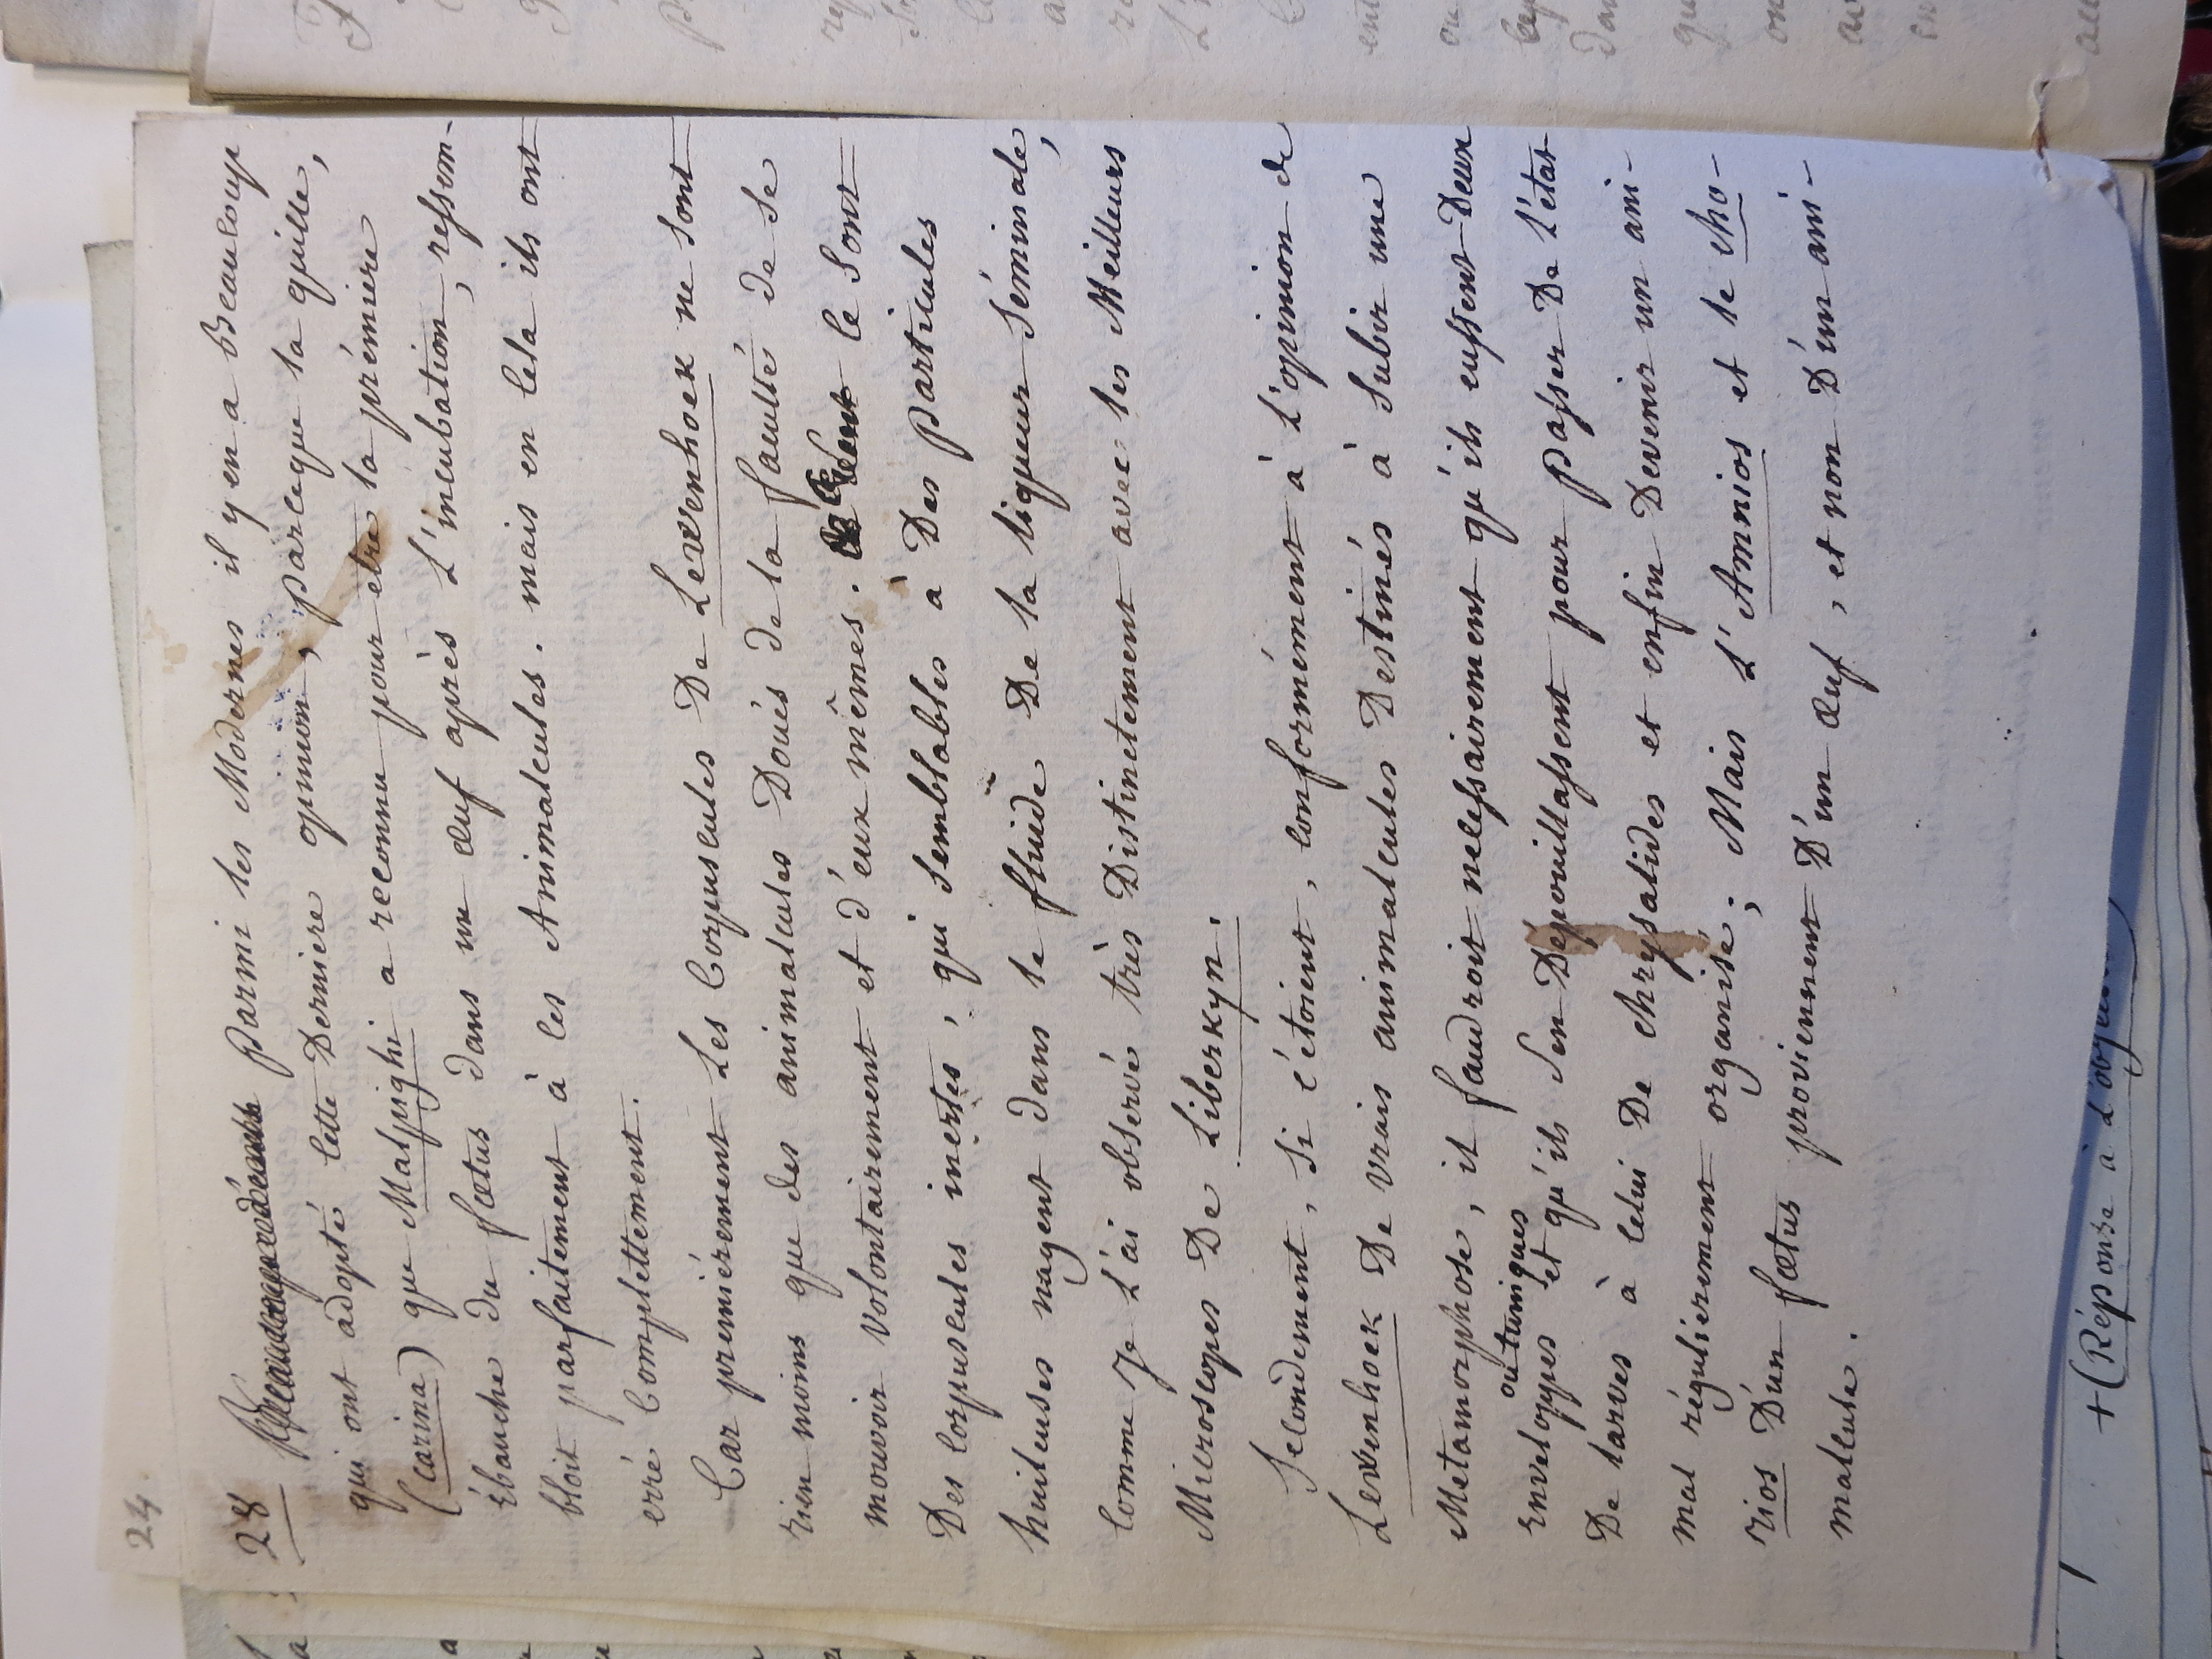 24
28 Parmi les Modernes il y en a Beaucoup
qui ont adopté cette Derniere opinion, parceque la quille,
(carina) que Malpighi a reconnu pour etre la prémiere
ébauche du fœtus dans un œuf après L'incubation, ressem-
bloit parfaitement à ces Animalcules. mais en cela ils ont
erré Complettement.
Car premiérement Les Corpuscules De Lewenhoek ne sont
rien moins que des animalcules Doués de la faculté de se
mouvoir volontairement et d'eux mêmes. ce sont
Des Corpuscules inertes, qui semblables à Des particules
huileuses nagent dans le fluide De la liqueur séminale,
comme je l'ai observé très Distinctement avec les Meilleurs
Microscopes De Liberkyn.
Secondement, si c'étoient, conformément à l'opinion de
Lewenhoek De vrais animalcules Destinés à subir une
Métamorphose, il faudroit necessairement qu'ils eussent Deux
ou tuniques
enveloppes et qu'ils s'en Dépouillassent pour passer De l'état
De larves à celui De chrysalides et enfin Devenir un ani-
mal réguliérement organisé; Mais l'Amnios et le Cho-
rios D'un fœtus proviennent D'un œuf, et non D'un ani-
malcule.
+ (Réponse à